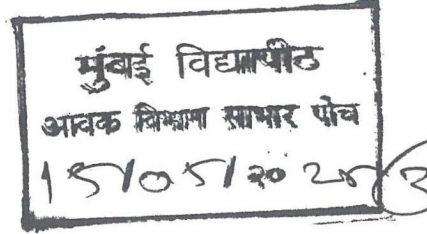 मुंबई विद्यापीठ
आवक विभाग साभार पोच
15/05/2025